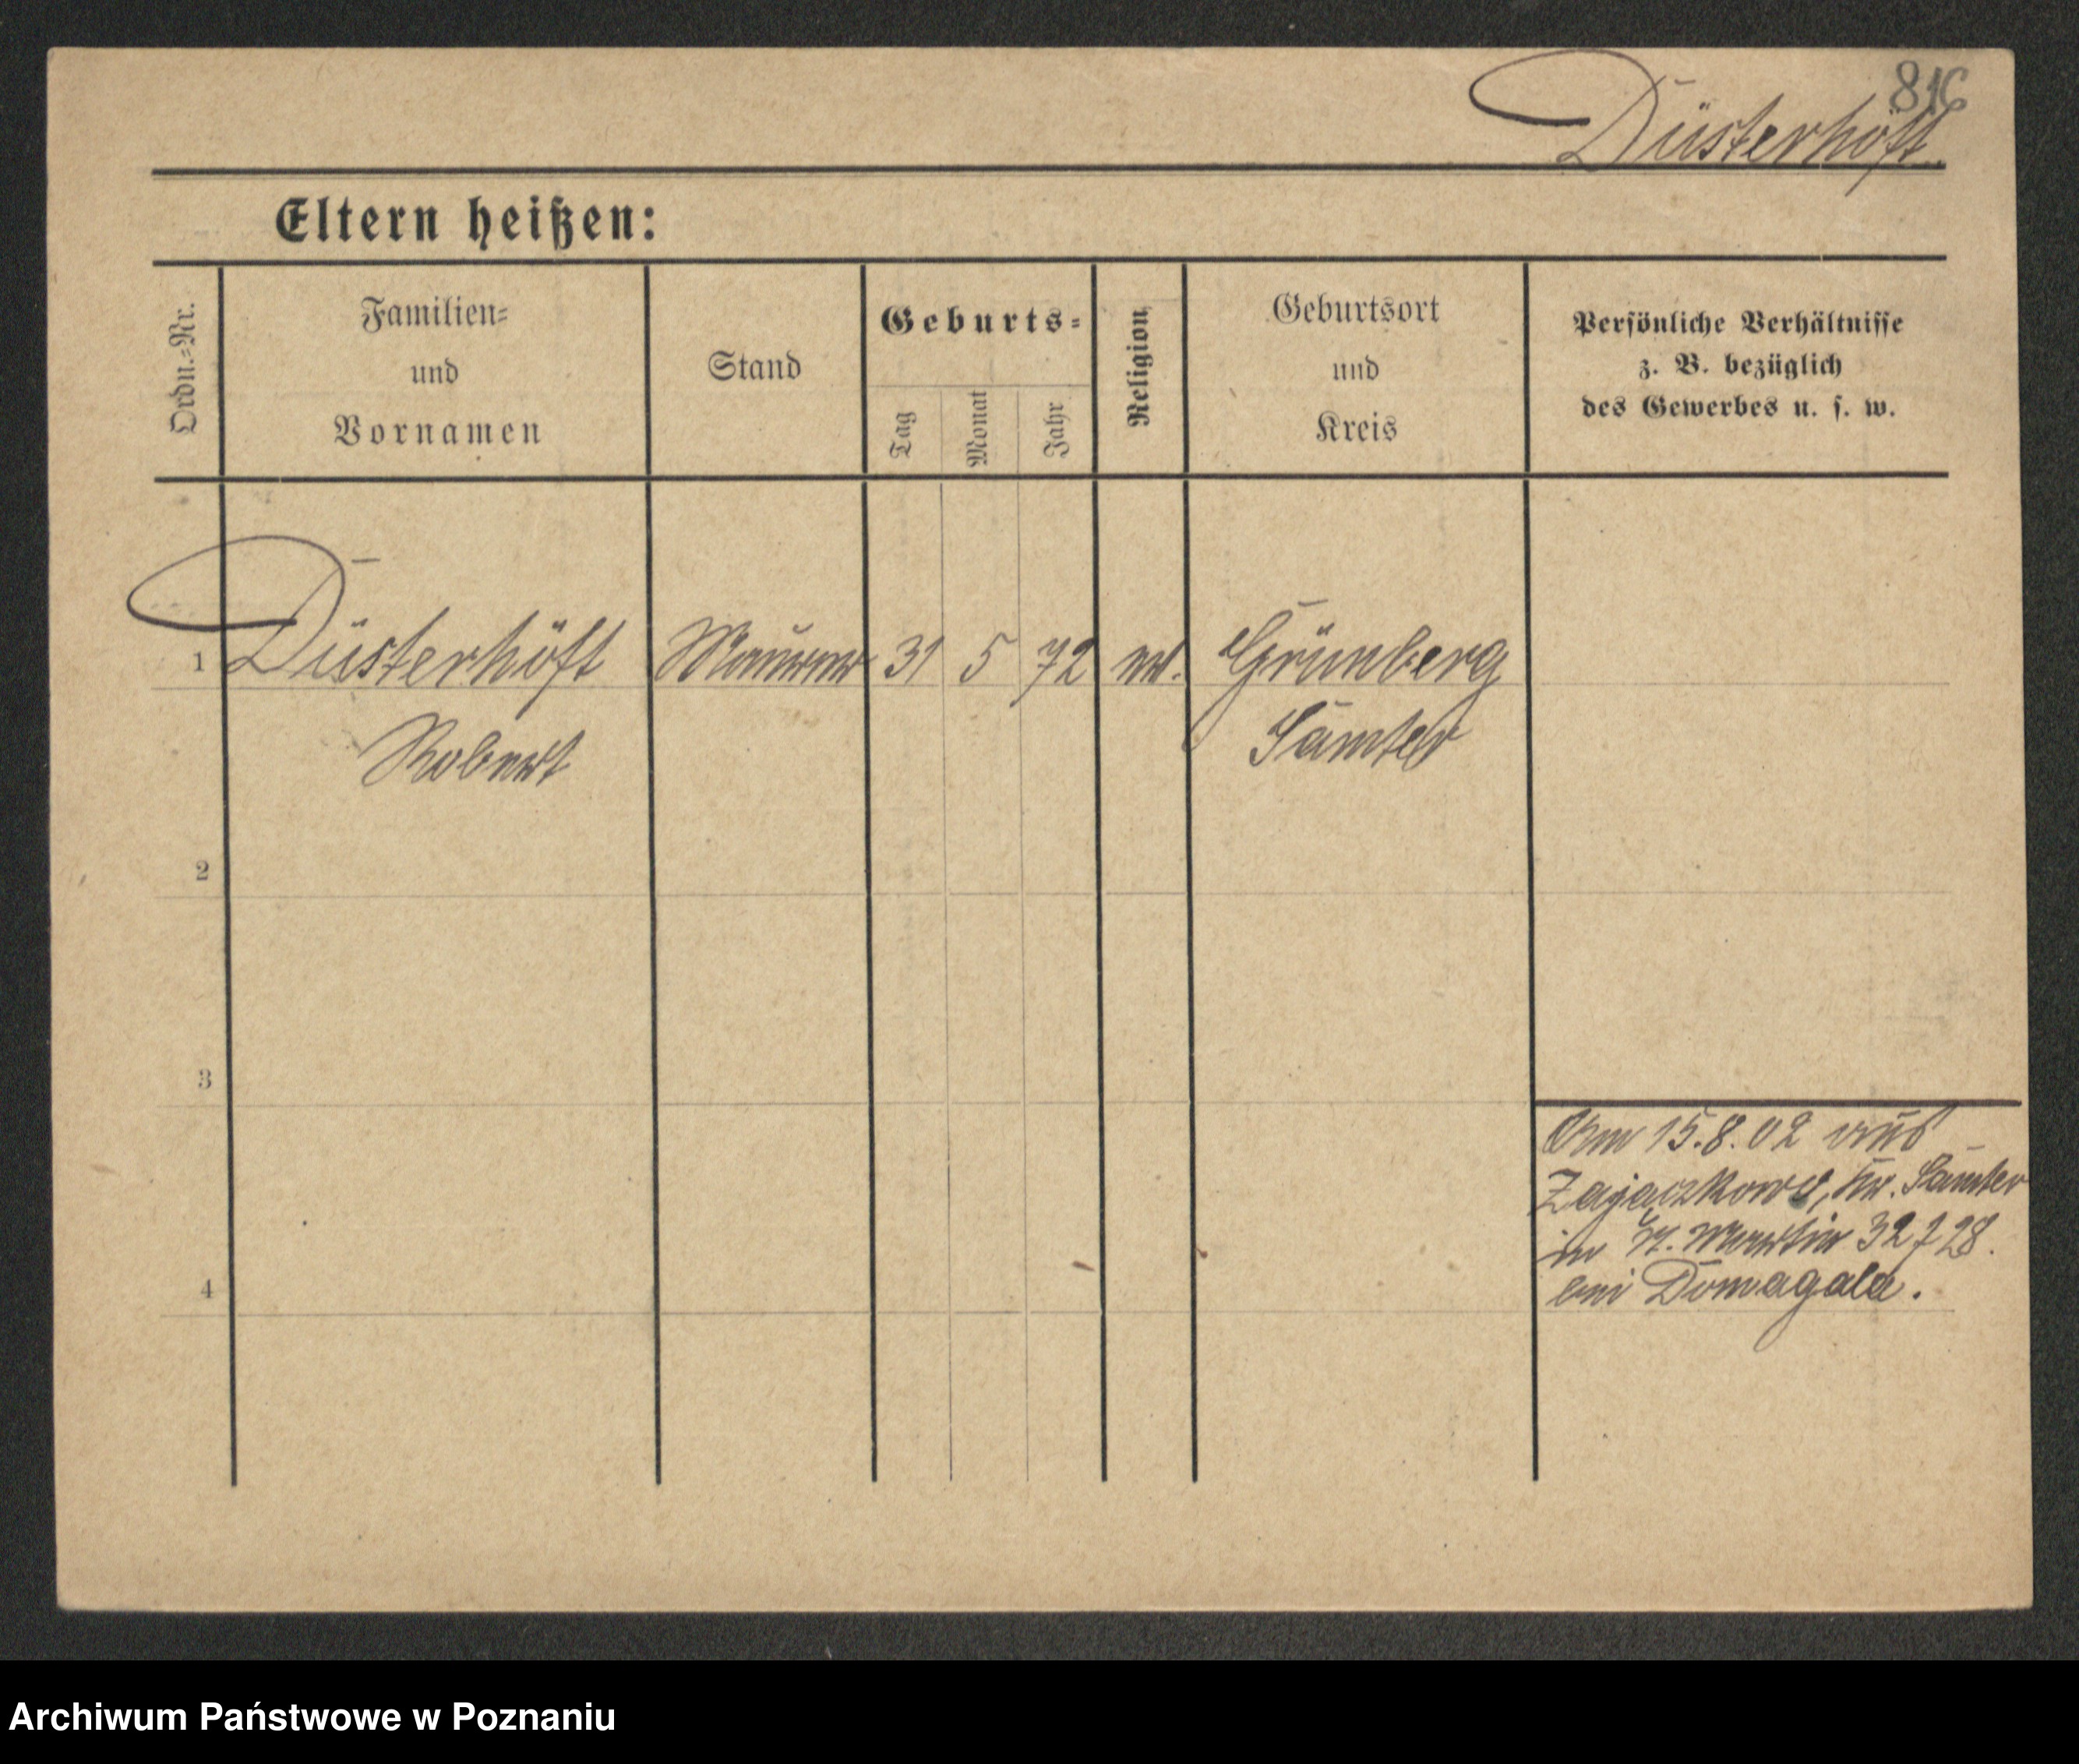 816
Düsterhöft
Eltern heißen:
Ordn.-Nr.
Familien-
und
Vornamen
Stand
Geburts-
Tag
Monat
Jahr
Religion
Geburtsort
und
Kreis
Persönliche Verhältnisse
z. B. bezüglich
des Gewerbes u. s. w.
1 Düsterhöft Maurer 31 5 72 ev. Grünberg
Robert Samter
2
3
Am 15.8.02 aus
Zajaczkowo, Kr. Samter
in St. Martin 32 f 28.
bei Domagala.
4
Archiwum Państwowe w Poznaniu